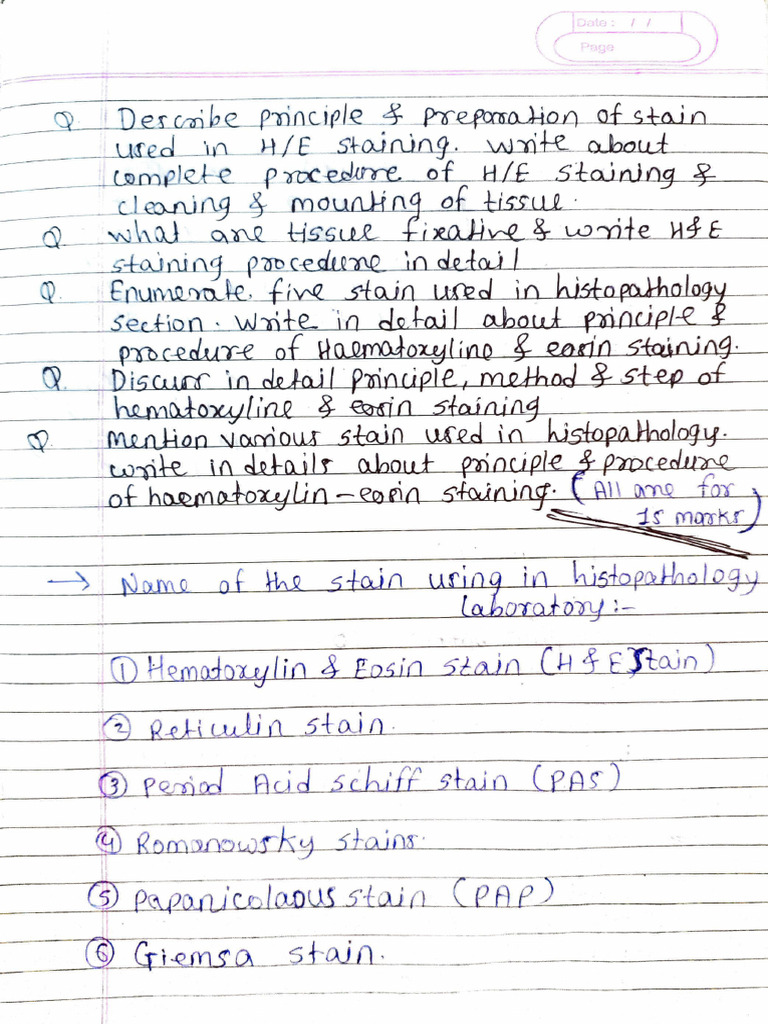 Date : / /
Page
Q Describe principle & preparation of stain
used in H/E staining. write about
complete procedure of H/E staining &
cleaning & mounting of tissue.
Q what are tissue fixative & write H&E
staining procedure in detail
Q. Enumerate. five stain used in histopathology
section. Write in detail about principle &
procedure of Haematoxyline & eosin staining.
Q. Discuss in detail principle, method & step of
hematoxyline & eosin staining
Q. mention various stain used in histopathology.
write in details about principle & procedure
of haematoxylin-eosin staining. (All are for
15 marks)
→ Name of the stain using in histopathology
Laboratory:-
① Hematoxylin & Eosin stain (H & E Stain)
② Reticulin stain.
③ Period Acid schiff stain (PAS)
④ Romanowsky stains.
⑤ Papanicolaous stain (PAP)
⑥ Giemsa stain.